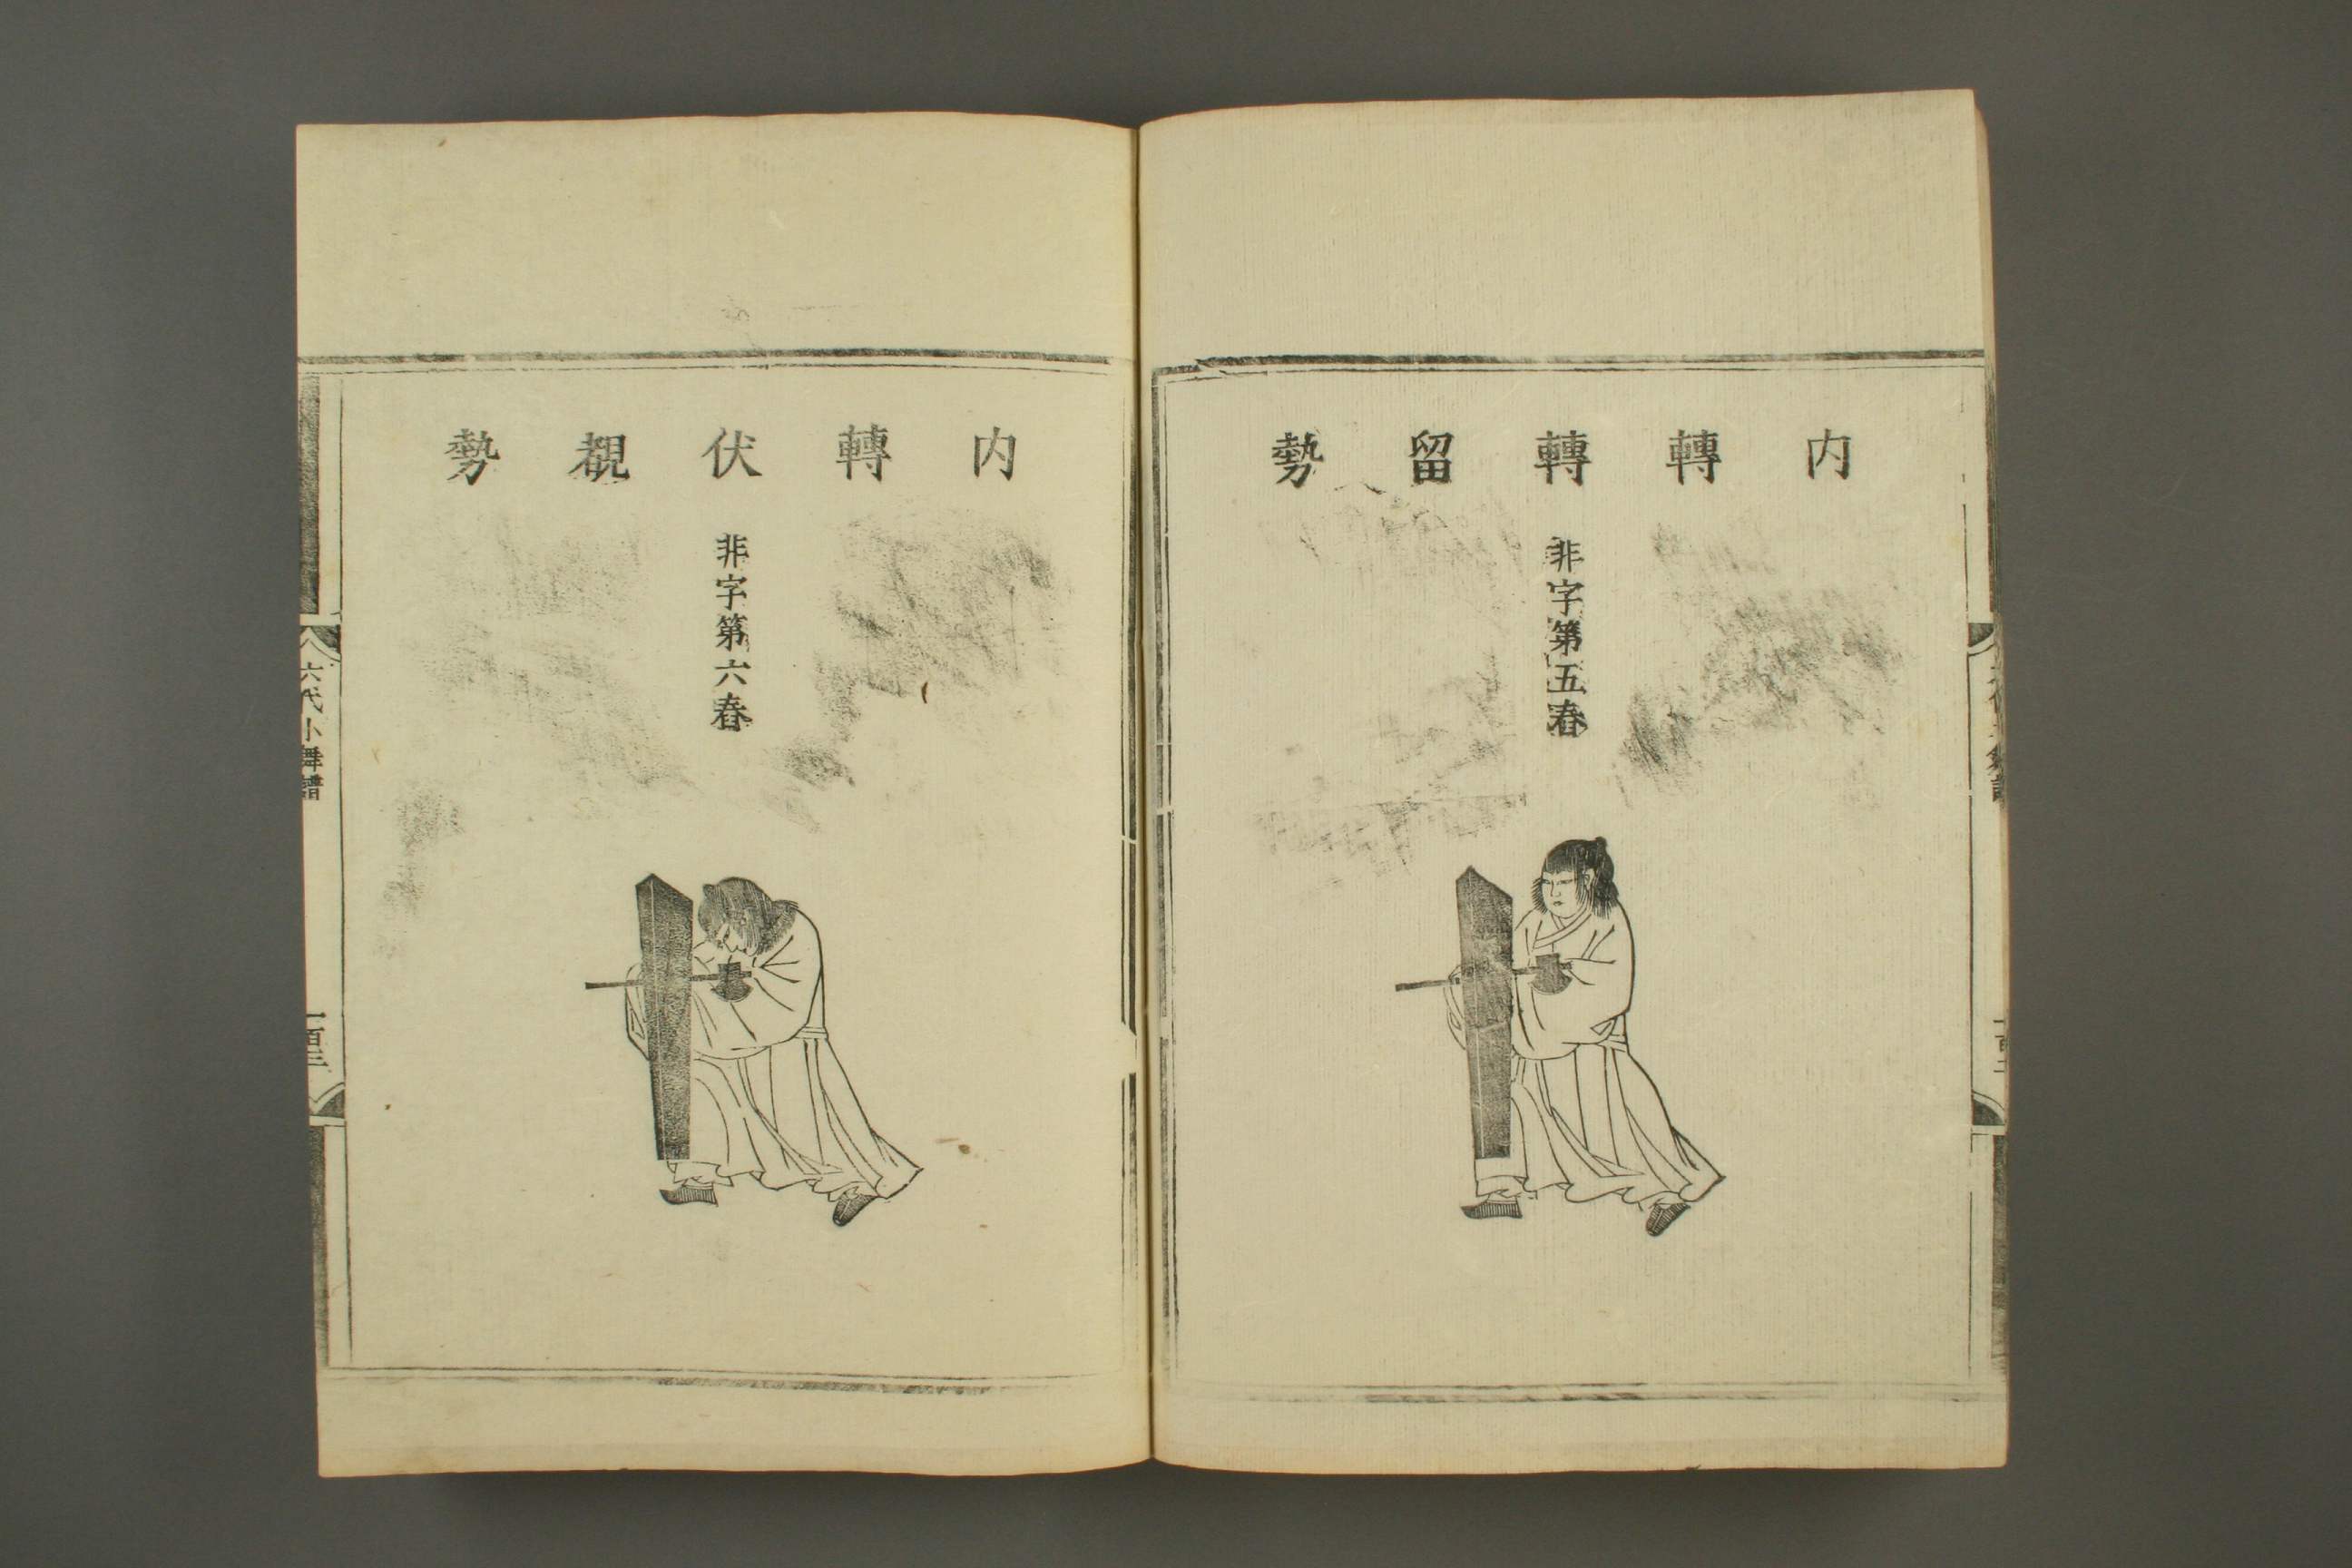 内轉轉留勢
非字第五春
内轉伏覩勢
非字第六春
六代小舞譜